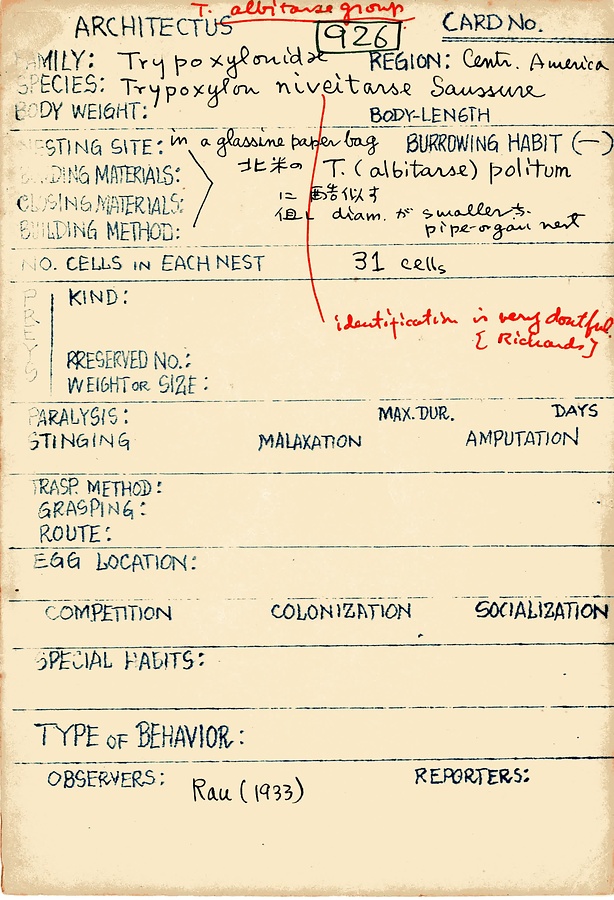 T. albitarse group
ARCHITECTUS 926 CARD No.
FAMILY: Trypoxylonidæ REGION: Centr. America
SPECIES: Trypoxylon niveitarse Saussure
BODY WEIGHT: BODY-LENGTH
NESTING SITE: in a glassine paper bag BURROWING HABIT (—)
BUILDING MATERIALS: 北米の T. (albitarse) politum
CLOSING MATERIALS: に酷似す
BUILDING METHOD: 但し diam. が smaller
pipe-organ nest
NO. CELLS IN EACH NEST 31 cells
PREYS
KIND:
identification is very doutful.
[Richards]
PRESERVED NO.:
WEIGHT OR SIZE:
PARALYSIS: MAX. DUR. DAYS
STINGING MALAXATION AMPUTATION
TRASP. METHOD:
GRASPING:
ROUTE:
EGG LOCATION:
COMPETITION COLONIZATION SOCIALIZATION
SPECIAL HABITS:
TYPE OF BEHAVIOR:
OBSERVERS: Rau (1933) REPORTERS: